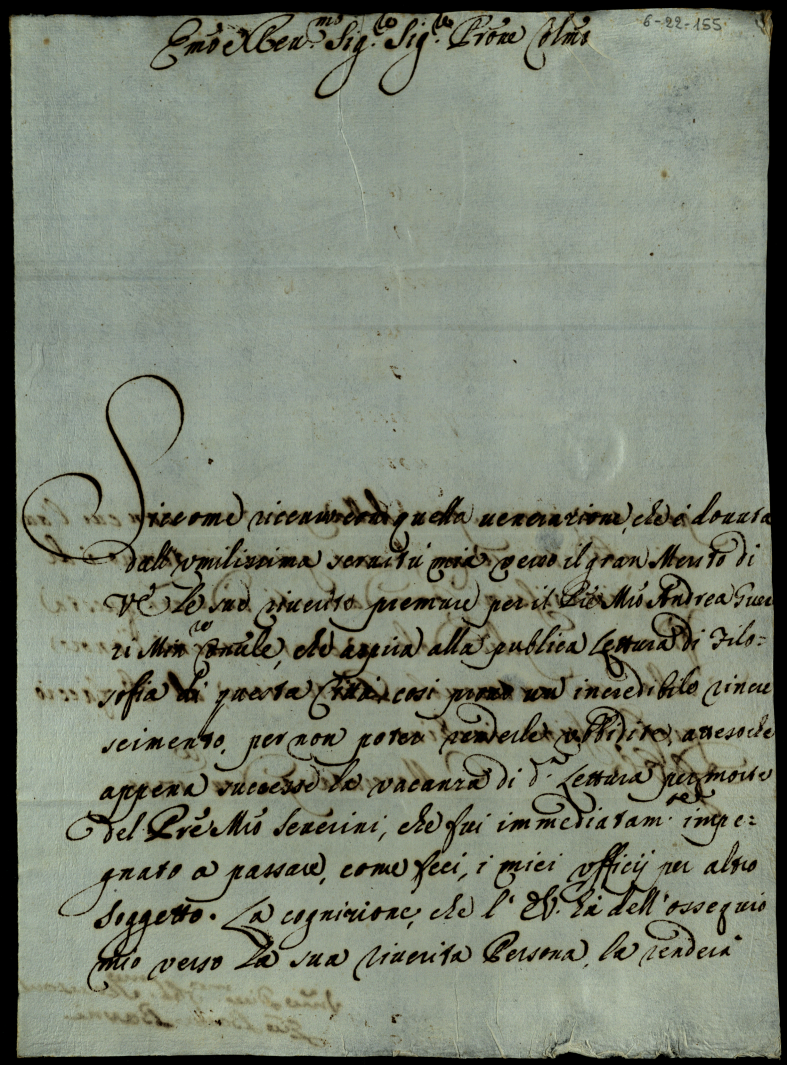 6-22-155
Emo e Reu.mo Sig.re Sig.re Prone Colmo
Siccome riceuerono quella uenerazione, che è douuta
dall'vmilissima seruitù mia verso il gran Merito di
V.E. le sue riuerite premure per il Pre Mro Andrea Guer
ri Min.re Conule, che aspira alla publica Lettura di Filo=
sofia di questa Città, così prouo un incredibile rincre
scimento, per non poter renderle vbbidite, attesoche
appena successe la vacanza di d.a Lettura per morte
del Pre Mro Seuerini, che fui immediatam.te impe=
gnato a passare, come feci, i miei vfficij per altro
soggetto. La cognizione, che l'E.V. hà dell'ossequio
mio verso la sua riuerita Persona, la renderà